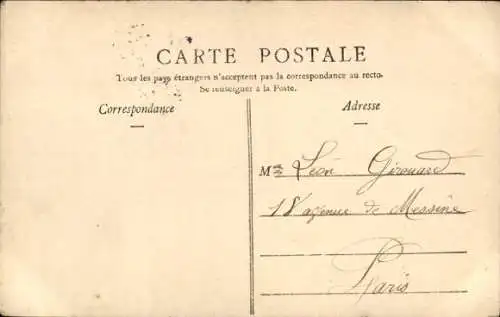 CARTE POSTALE
Tous les pays étrangers n'acceptent pas la correspondance au recto.
Se renseigner à la Poste.
Correspondance
Adresse
Mr Léon Girouard
18 avenue de Messine
Paris